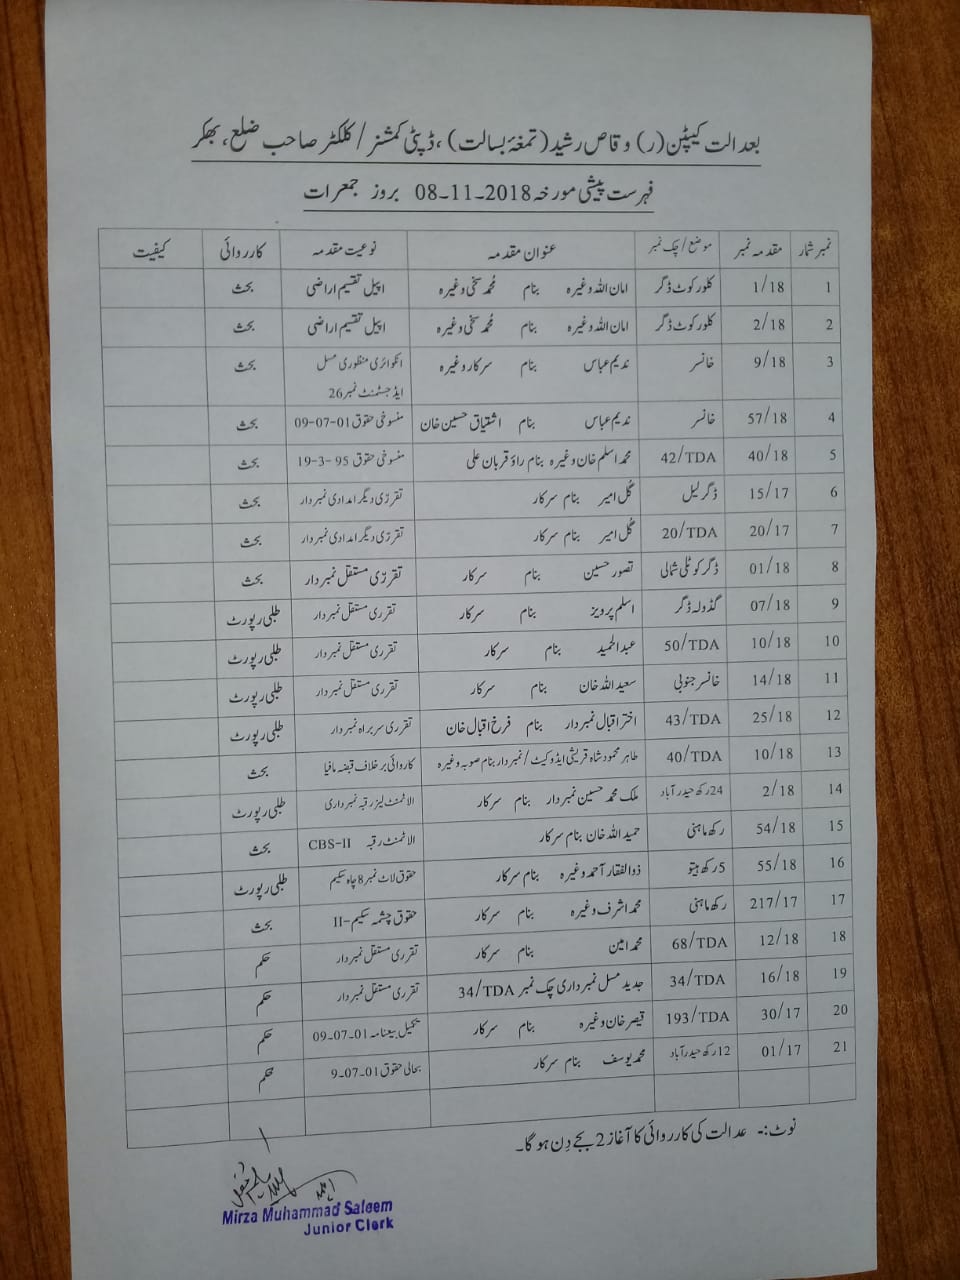 بعدالت کیپٹن(ر) وقاص رشید(تمغۂ بسالت)، ڈپٹی کمشنر/کلکٹر صاحب ضلع، بھکر
فہرست پیشی مورخہ 08-11-2018 بروز جمعرات
نمبر شمار مقدمہ نمبر موضع/چک نمبر عنوان مقدمہ نوعیت مقدمہ کارروائی کیفیت
1 1/18 کلورکوٹ ڈگر امان اللہ وغیرہ بنام محمد سخی وغیرہ اپیل تقسیم اراضی بحث
2 2/18 کلورکوٹ ڈگر امان اللہ وغیرہ بنام محمد سخی وغیرہ اپیل تقسیم اراضی بحث
3 9/18 خانسر ندیم عباس بنام سرکار وغیرہ انکوائری منظوری مسل ایڈجسٹمنٹ نمبر 26 بحث
4 57/18 خانسر ندیم عباس بنام اشتیاق حسین خان منسوخی حقوق 01-07-09 بحث
5 40/18 42/TDA محمد اسلم خان وغیرہ بنام راؤ قربان علی منسوخی حقوق 95-3-19 بحث
6 15/17 ڈگر لیل گل امیر بنام سرکار تقرری دیگر امدادی نمبردار بحث
7 20/17 20/TDA گل امیر بنام سرکار تقرری دیگر امدادی نمبردار بحث
8 01/18 ڈگر کوٹلی شمالی تصور حسین بنام سرکار تقرری مستقل نمبردار بحث
9 07/18 گڈولہ ڈگر اسلم پرویز بنام سرکار تقرری مستقل نمبردار طلبی رپورٹ
10 10/18 50/TDA عبدالحمید بنام سرکار تقرری مستقل نمبردار طلبی رپورٹ
11 14/18 خانسر جنوبی سعید اللہ خان بنام سرکار تقرری مستقل نمبردار طلبی رپورٹ
12 25/18 43/TDA اختر اقبال نمبردار بنام فرخ اقبال خان تقرری سربراہ نمبردار طلبی رپورٹ
13 10/18 40/TDA طاہر محمود شاہ قریشی ایڈوکیٹ/نمبردار بنام صوبہ وغیرہ کاروائی برخلاف قبضہ مافیا بحث
14 2/18 24رکھ حیدرآباد ملک محمد حسین نمبردار بنام سرکار الاٹمنٹ لیز رقبہ نمبرداری طلبی رپورٹ
15 54/18 رکھ ماہنی حمید اللہ خان بنام سرکار الاٹمنٹ رقبہ CBS-II بحث
16 55/18 5رکھ ہیتو ذوالفقار آحمد وغیرہ بنام سرکار حقوق لاٹ نمبر 8 چاہ سکیم طلبی رپورٹ
17 217/17 رکھ ماہنی محمد اشرف وغیرہ بنام سرکار حقوق چشمہ سکیم-II بحث
18 12/18 68/TDA محمد امین بنام سرکار تقرری مستقل نمبردار حکم
19 16/18 34/TDA جدید مسل نمبرداری چک نمبر 34/TDA تقرری مستقل نمبردار حکم
20 30/17 193/TDA قیصر خان وغیرہ بنام سرکار تکمیل بیعنامہ 01-07-09 حکم
21 01/17 12رکھ حیدرآباد محمد یوسف بنام سرکار بحالی حقوق 01-07-9 حکم
نوٹ:- عدالت کی کارروائی کا آغاز 2 بجے دِن ہو گا۔
Mirza Muhammad Saleem
Junior Clerk